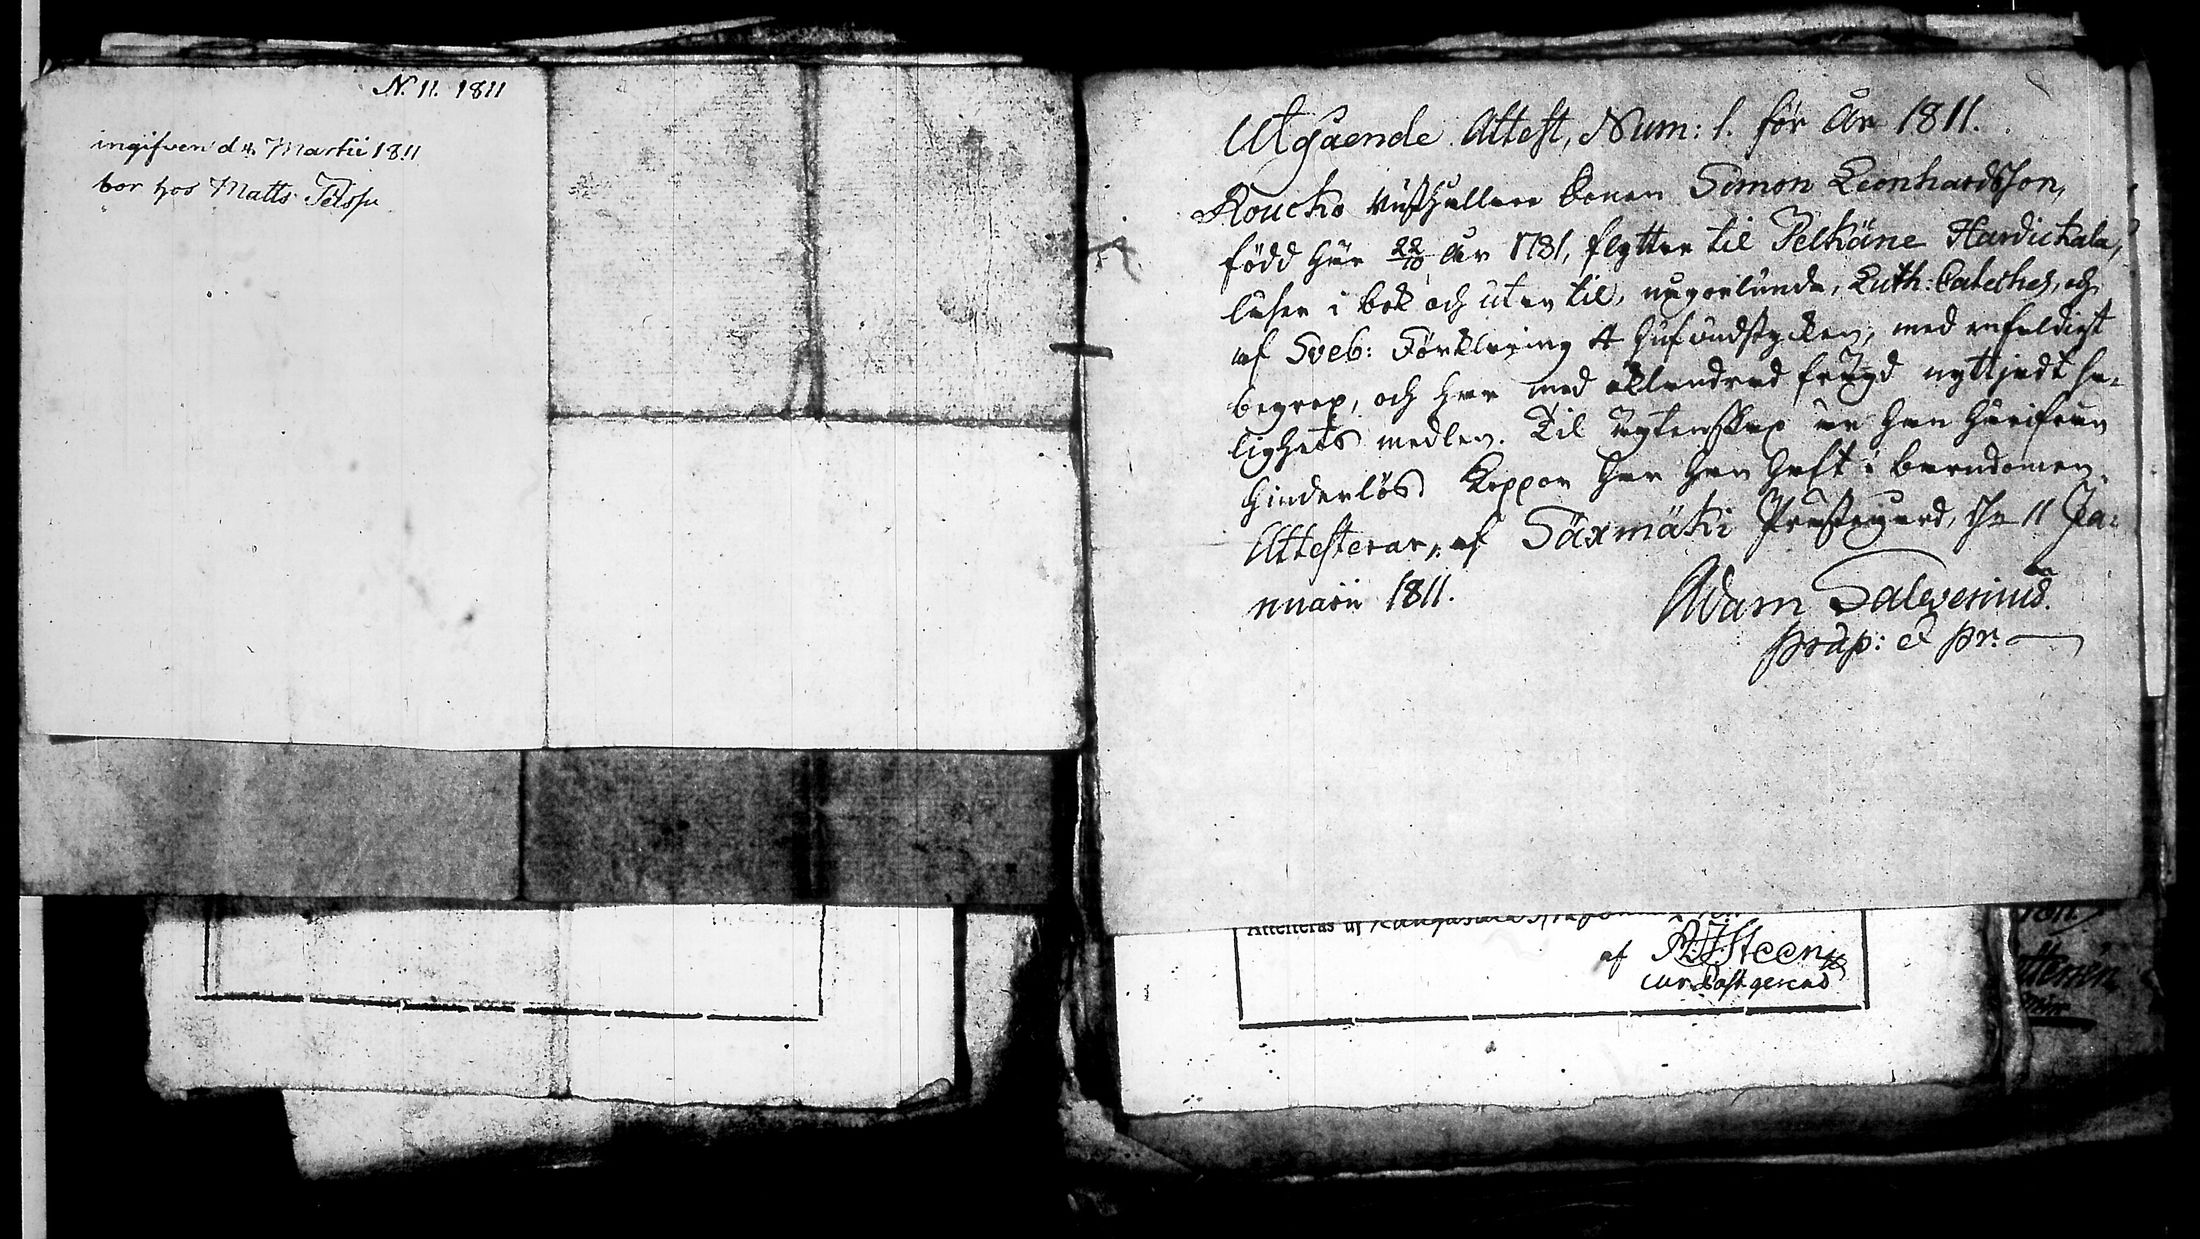 N. 11. 1811
ingifven d 4 Martii 1811
bor hos Matts
Utgående Attest, Num: 1. för År 1811.
Roucko Vusthållare Sonen Simon Leonhardsson,
född här 22/10 År 1781, flyttar til Pelkäne Hardickala,
läser i bok och utan til, någorlunda, Luth: Cateches, och
af Sveb: Förklaring 4 hufvudstycken, med enfaldigt
begrep, och har med oklandrad frägd nyttjadt sa-
lighets medlen. Til Ägtenskap är han härifrån
hinderlös. Koppor har han haft i barndomen.
Attesterar, af Säxmäki Prästegård, d. 11 Ja-
nuarii 1811.
Adam Salvenius.
præp: & pr.
Attesteras af
af
cur Past gerens